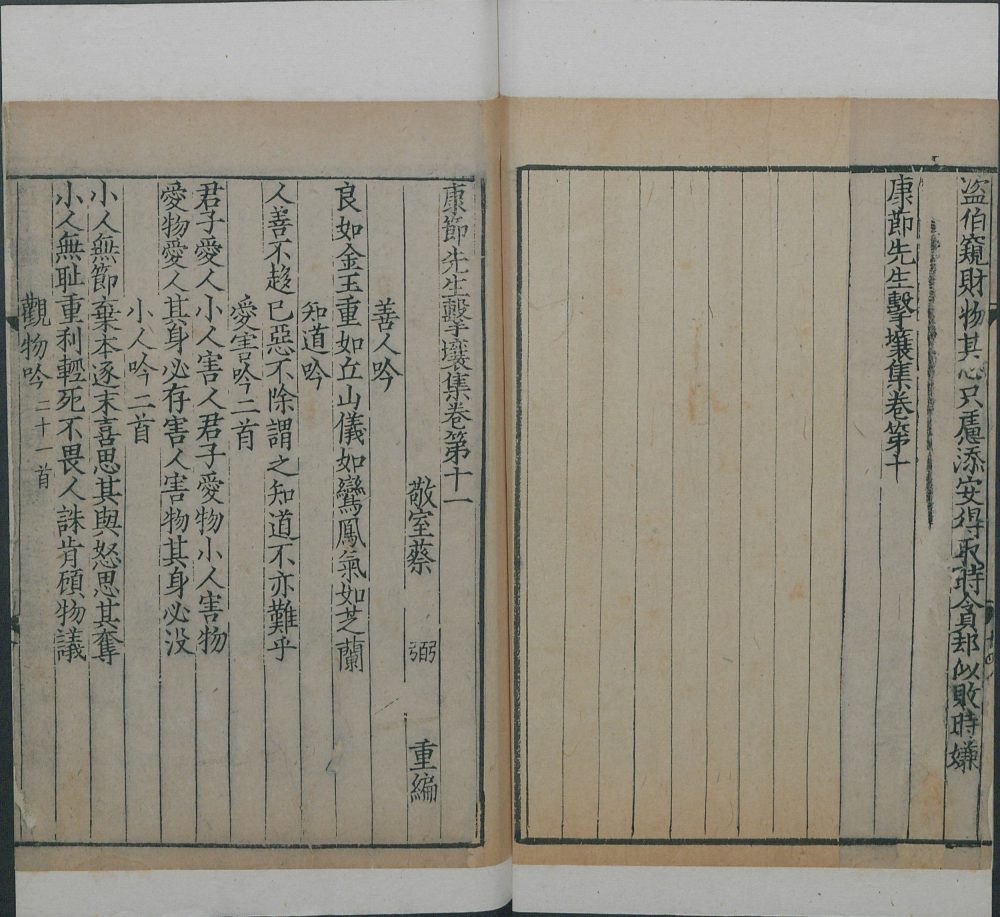 盗伯窺財物其心只慮添安得取時貪却似敗時嫌
康節先生擊壤集卷第十
康節先生擊壤集卷第十一
敬室蔡 弼 重編
善人吟
良如金玉重如丘山儀如鸞鳳氣如芝蘭
知道吟
人善不趍己惡不除謂之知道不亦難乎
愛害吟二首
君子愛人小人害人君子愛物小人害物
愛物愛人其身必存害人害物其身必没
小人吟二首
小人無節棄本逐末喜思其與怒思其奪
小人無耻重利輕死不畏人誅肯顧物議
觀物吟二十一首